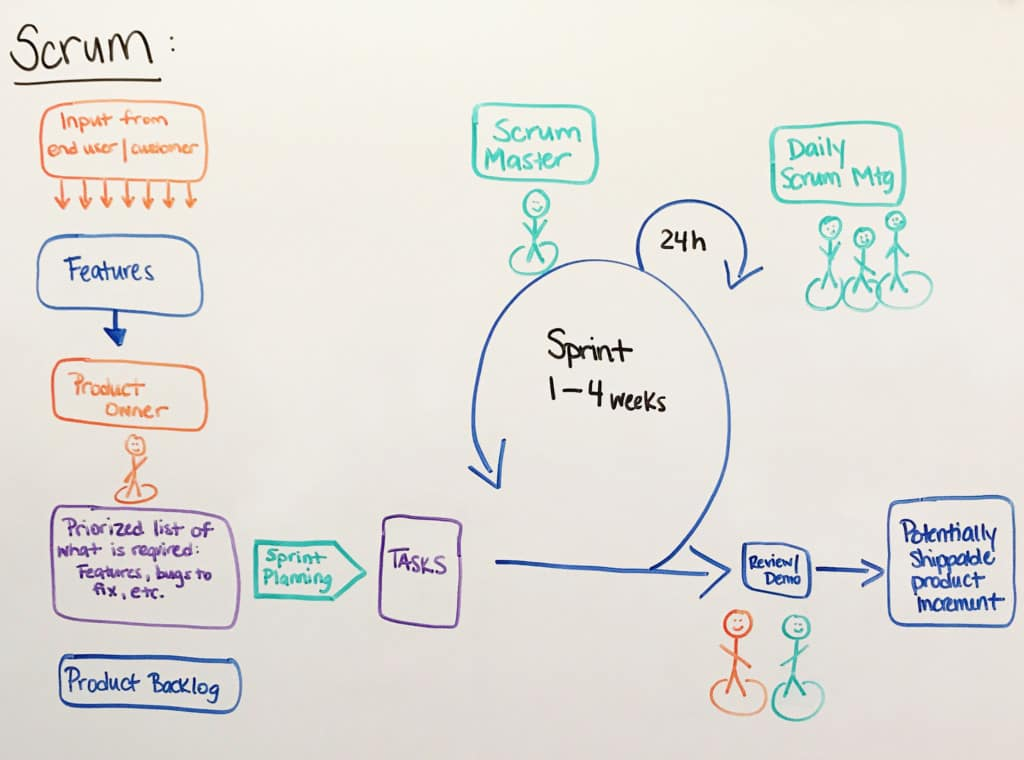 Scrum:
Input from
end user/customer
Features
Product
Owner
Priorized list of
what is required:
Features, bugs to
fix, etc.
Product Backlog
Sprint
Planning
TASKS
Scrum
Master
24h
Daily
Scrum Mtg
Sprint
1-4 weeks
Review/
Demo
Potentially
Shippable
product
increment